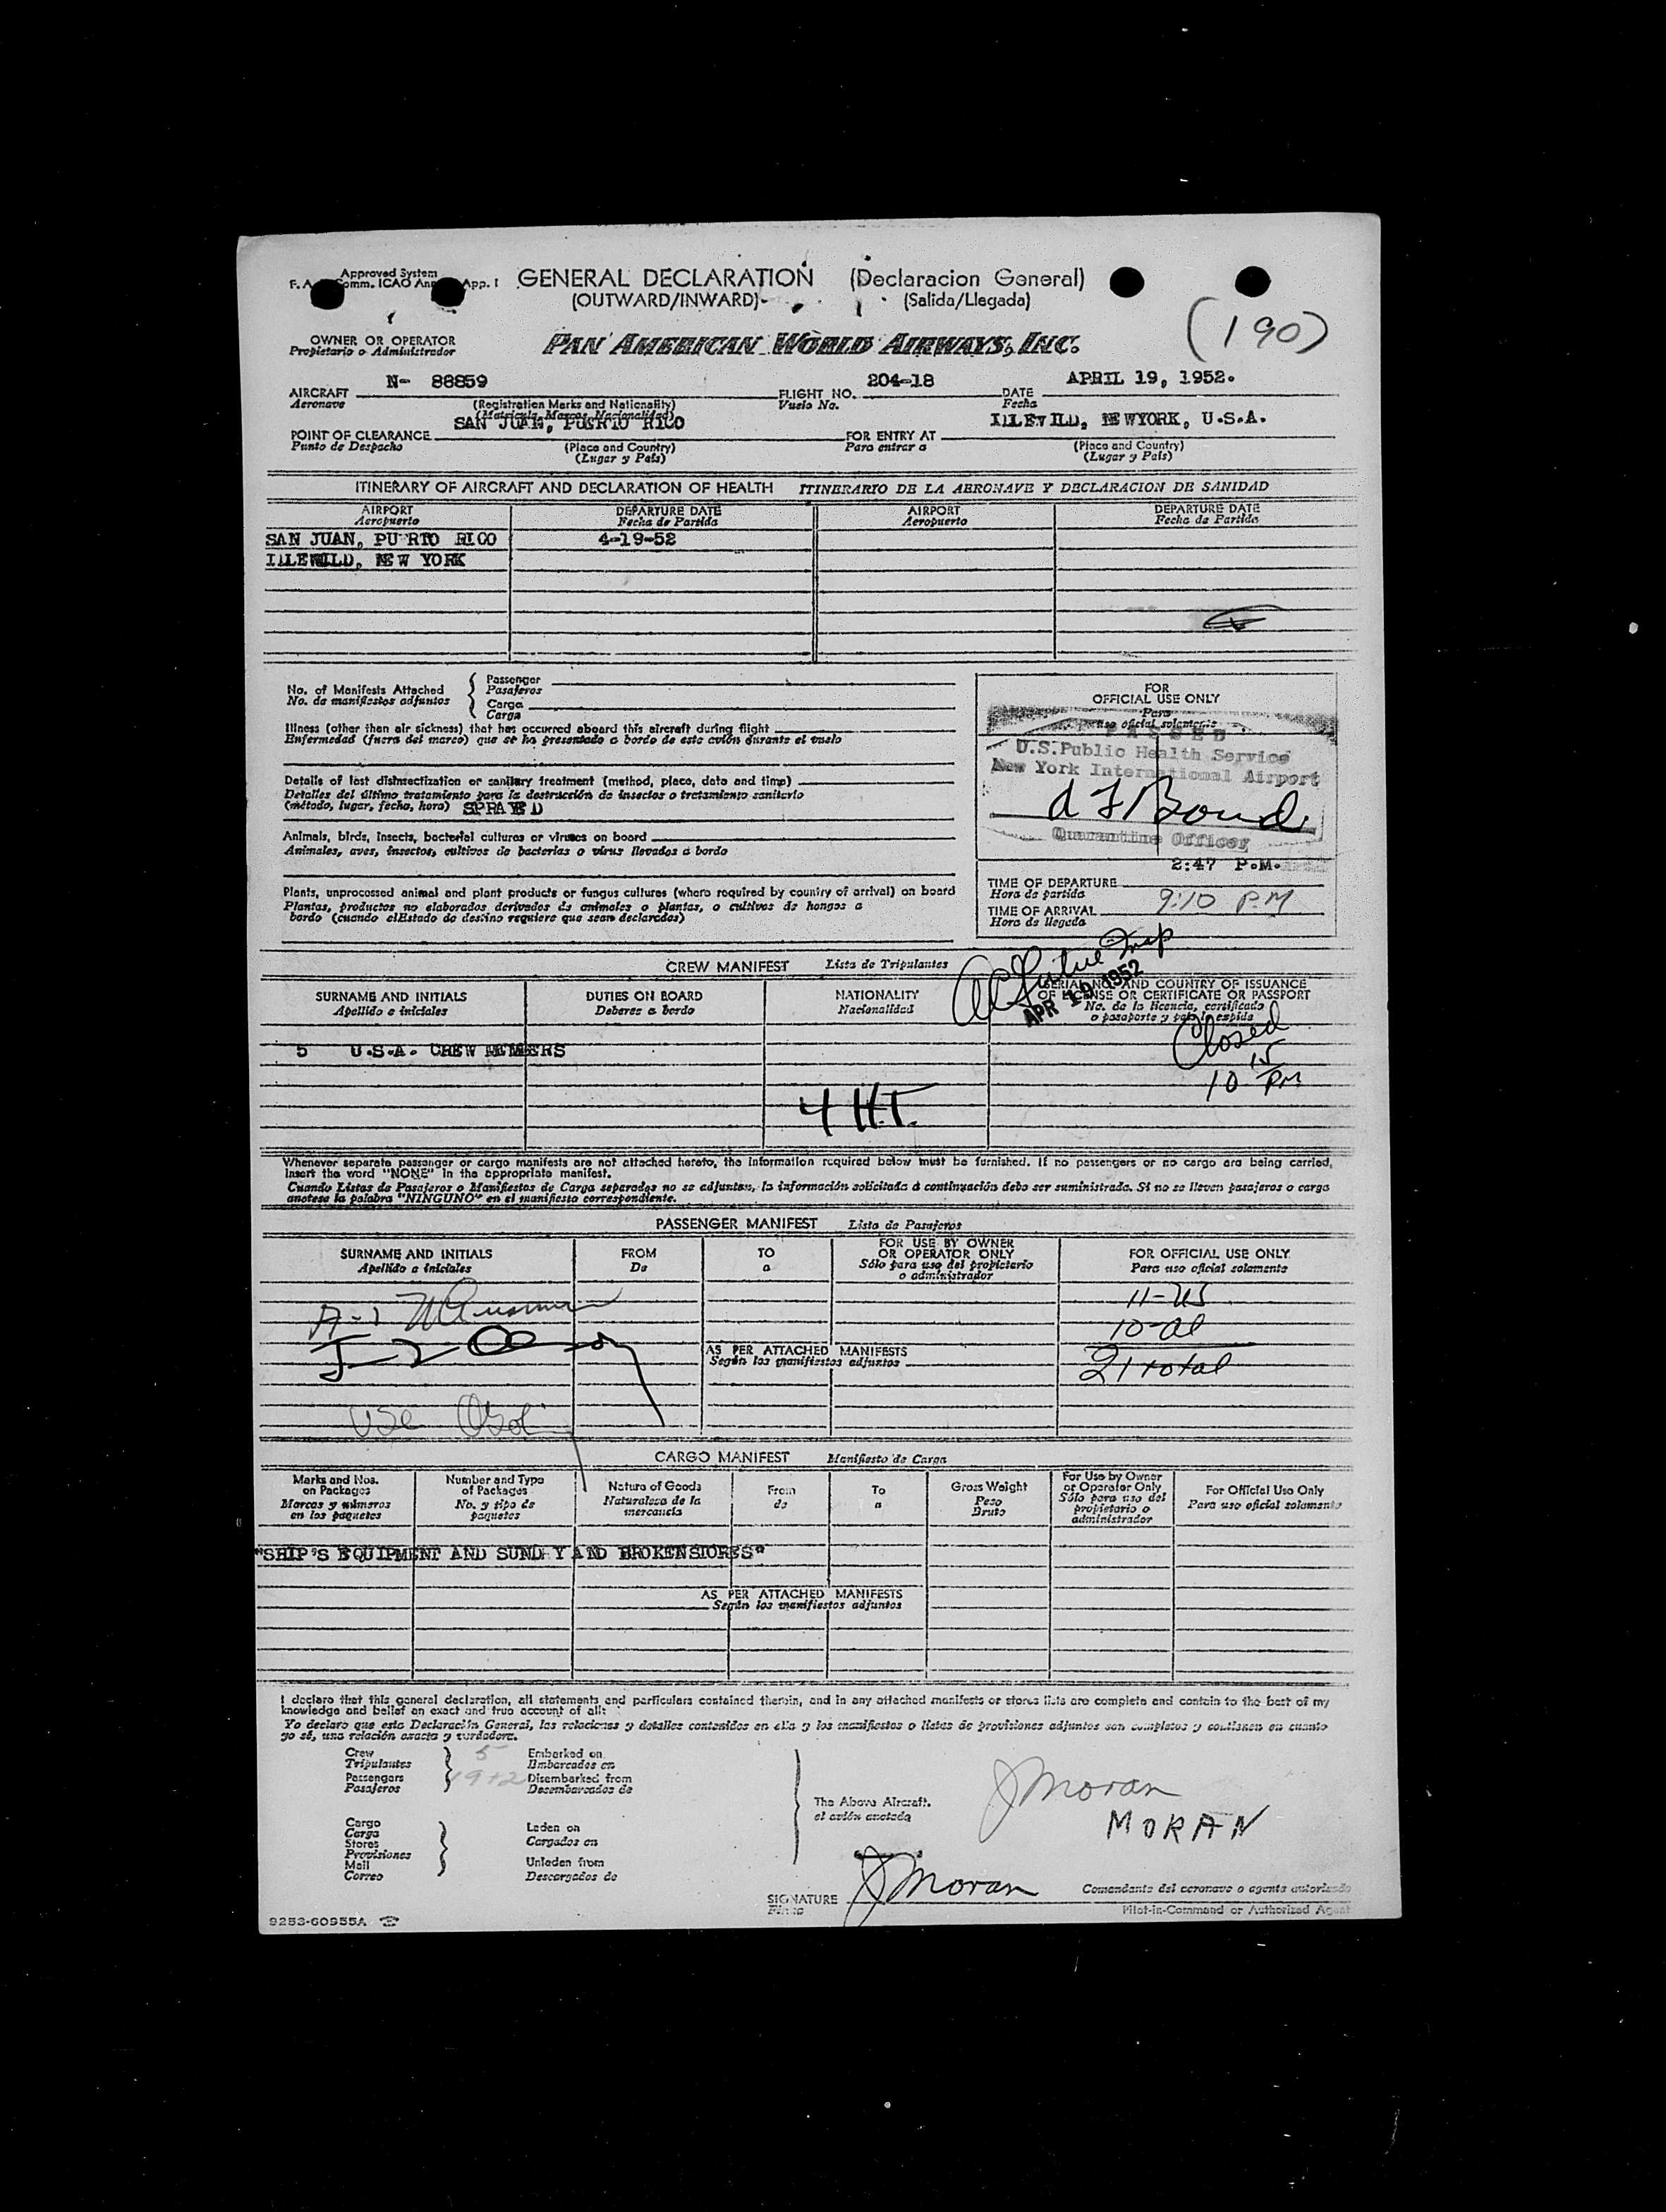 Approved System
F. A. Comm. ICAO Ann App. I
GENERAL DECLARATION (Declaracion General)
(OUTWARD/INWARD) (Salida/Llegada)
(190)
OWNER OR OPERATOR
Propietario o Administrador
PAN AMERICAN WORLD AIRWAYS, INC.
AIRCRAFT N- 88859 FLIGHT NO. 204-18 DATE APRIL 19, 1952.
Aeronave (Registration Marks and Nationality) Vuelo No. Fecha
(Matricula, Marcas, Nacionalidad)
POINT OF CLEARANCE SAN JUAN, PUERTO RICO FOR ENTRY AT IDLEWILD, NEWYORK, U.S.A.
Punto de Despacho (Place and Country) Para entrar a (Place and Country)
(Lugar y País) (Lugar y País)
ITINERARY OF AIRCRAFT AND DECLARATION OF HEALTH ITINERARIO DE LA AERONAVE Y DECLARACION DE SANIDAD
AIRPORT DEPARTURE DATE AIRPORT DEPARTURE DATE
Aeropuerto Fecha de Partida Aeropuerto Fecha de Partida
SAN JUAN, PU RTO RICO 4-19-52
IDLEWILD, NEW YORK
No. of Manifests Attached
No. de manifiestos adjuntos
Passenger
Pasajeros
Cargo
Carga
Illness (other than air sickness) that has occurred aboard this aircraft during flight
Enfermedad (fuera del mareo) que se ha presentado a bordo de este avión durante el vuelo
Details of last disinsectization or sanitary treatment (method, place, date and time)
Detalles del último tratamiento para la destrucción de insectos o tratamiento sanitario
(método, lugar, fecha, hora) SPRAYED
Animals, birds, insects, bacterial cultures or viruses on board
Animales, aves, insectos, cultivos de bacterias o virus llevados a bordo
Plants, unprocessed animal and plant products or fungus cultures (where required by country of arrival) on board
Plantas, productos no elaborados derivados de animales o plantas, o cultivos de hongos a
bordo (cuando elEstado de destino requiere que sean declarados)
FOR
OFFICIAL USE ONLY
Para
uso oficial solamente
PASSED
U.S. Public Health Service
New York International Airport
Bond
Quarantine Officer
2:47 P.M.
TIME OF DEPARTURE
Hora de partida
9:10 P.M
TIME OF ARRIVAL
Hora de llegada
CREW MANIFEST Lista de Tripulantes
Insp
APR 19 1952
SURNAME AND INITIALS DUTIES ON BOARD NATIONALITY SERIAL NO. AND COUNTRY OF ISSUANCE
OF LICENSE OR CERTIFICATE OR PASSPORT
Apellido e iniciales Deberes a bordo Nacionalidad No. de la licencia, certificado
o pasaporte y país la expida
5 U.S.A. CREW MEMBERS
Closed
10 15 PM
4 H.T.
Whenever separate passenger or cargo manifests are not attached hereto, the information required below must be furnished. If no passengers or no cargo are being carried,
insert the word "NONE" in the appropriate manifest.
Cuando Listas de Pasajeros o Manifiestos de Carga separados no se adjuntan, la información solicitada a continuación debe ser suministrada. Si no se lleven pasajeros o carga
anotese la palabra "NINGUNO" en el manifiesto correspondiente.
PASSENGER MANIFEST Lista de Pasajeros
SURNAME AND INITIALS FROM TO FOR USE BY OWNER OR OPERATOR ONLY FOR OFFICIAL USE ONLY
Apellido e iniciales De a Sólo para uso del propietario o administrador Para uso oficial solamente
11-US
10-al
21 total
AS PER ATTACHED MANIFESTS
Según los manifiestos adjuntos
CARGO MANIFEST Manifiesto de Carga
Marks and Nos. on Packages Number and Type of Packages Nature of Goods From To Gross Weight For Use by Owner or Operator Only For Official Use Only
Marcas y números en los paquetes No. y tipo de paquetes Naturaleza de la mercancia de a Peso Bruto Sólo para uso del propietario o administrador Para uso oficial solamente
"SHIP'S EQUIPMENT AND SUNDRY AND BROKENSTORES"
AS PER ATTACHED MANIFESTS
Según los manifiestos adjuntos
I declare that this general declaration, all statements and particulars contained therein, and in any attached manifests or stores lists are complete and contain to the best of my
knowledge and belief an exact and true account of all:
Yo declaro que esta Declaración General, las relaciones y detalles contenidos en ella y los manifiestos o listas de provisiones adjuntos son completos y contienen en cuanto
yo sé, una relación exacta y verdadera.
Crew 5 Embarked on
Tripulantes Embarcados en
Passengers 19+2 Disembarked from
Pasajeros Desembarcados de
The Above Aircraft.
el avión anotado
Cargo Laden on
Carga Cargados en
Stores
Provisiones
Mail Unladen from
Correo Descargados de
J Moran
MORAN
SIGNATURE J Moran
Firma
Comandante del aeronave o agente autorizado
Pilot-in-Command or Authorized Agent
9253-60955A